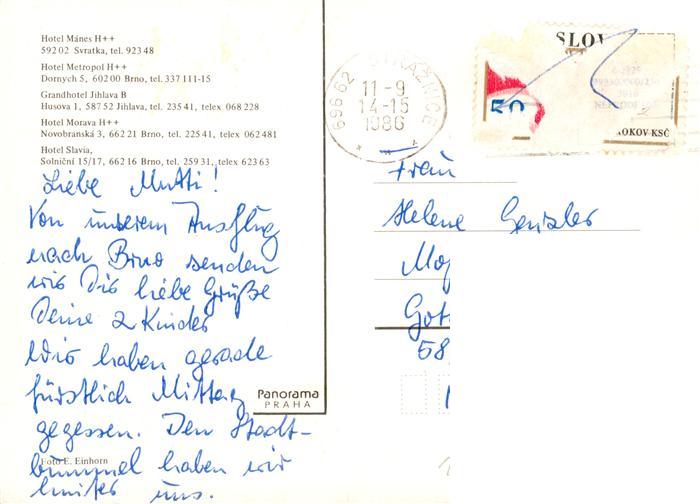 Hotel Mánes H++
592 02 Svratka, tel. 923 48
Hotel Metropol H++
Dornych 5, 602 00 Brno, tel. 337 111-15
Grandhotel Jihlava B
Husova 1, 587 52 Jihlava, tel. 235 41, telex 068 228
Hotel Morava H++
Novobranská 3, 662 21 Brno, tel. 225 41, telex 062 481
Hotel Slavia,
Solniční 15/17, 662 16 Brno, tel. 259 31, telex 623 63
Liebe Mutti!
Von unserem Ausflug
nach Brno senden
wir Dir liebe Grüße
Deine 2 Kinder
Wir haben gerade
fürstlich Mittag
gegessen. Den Stadt-
bummel haben wir
hinter uns.
Foto E. Einhorn
Panorama
PRAHA
696 62 STRÁŽNICE
11-9
14-15
1986
SLOV
50
OKOV KSČ
Frau
Helene
Got
58